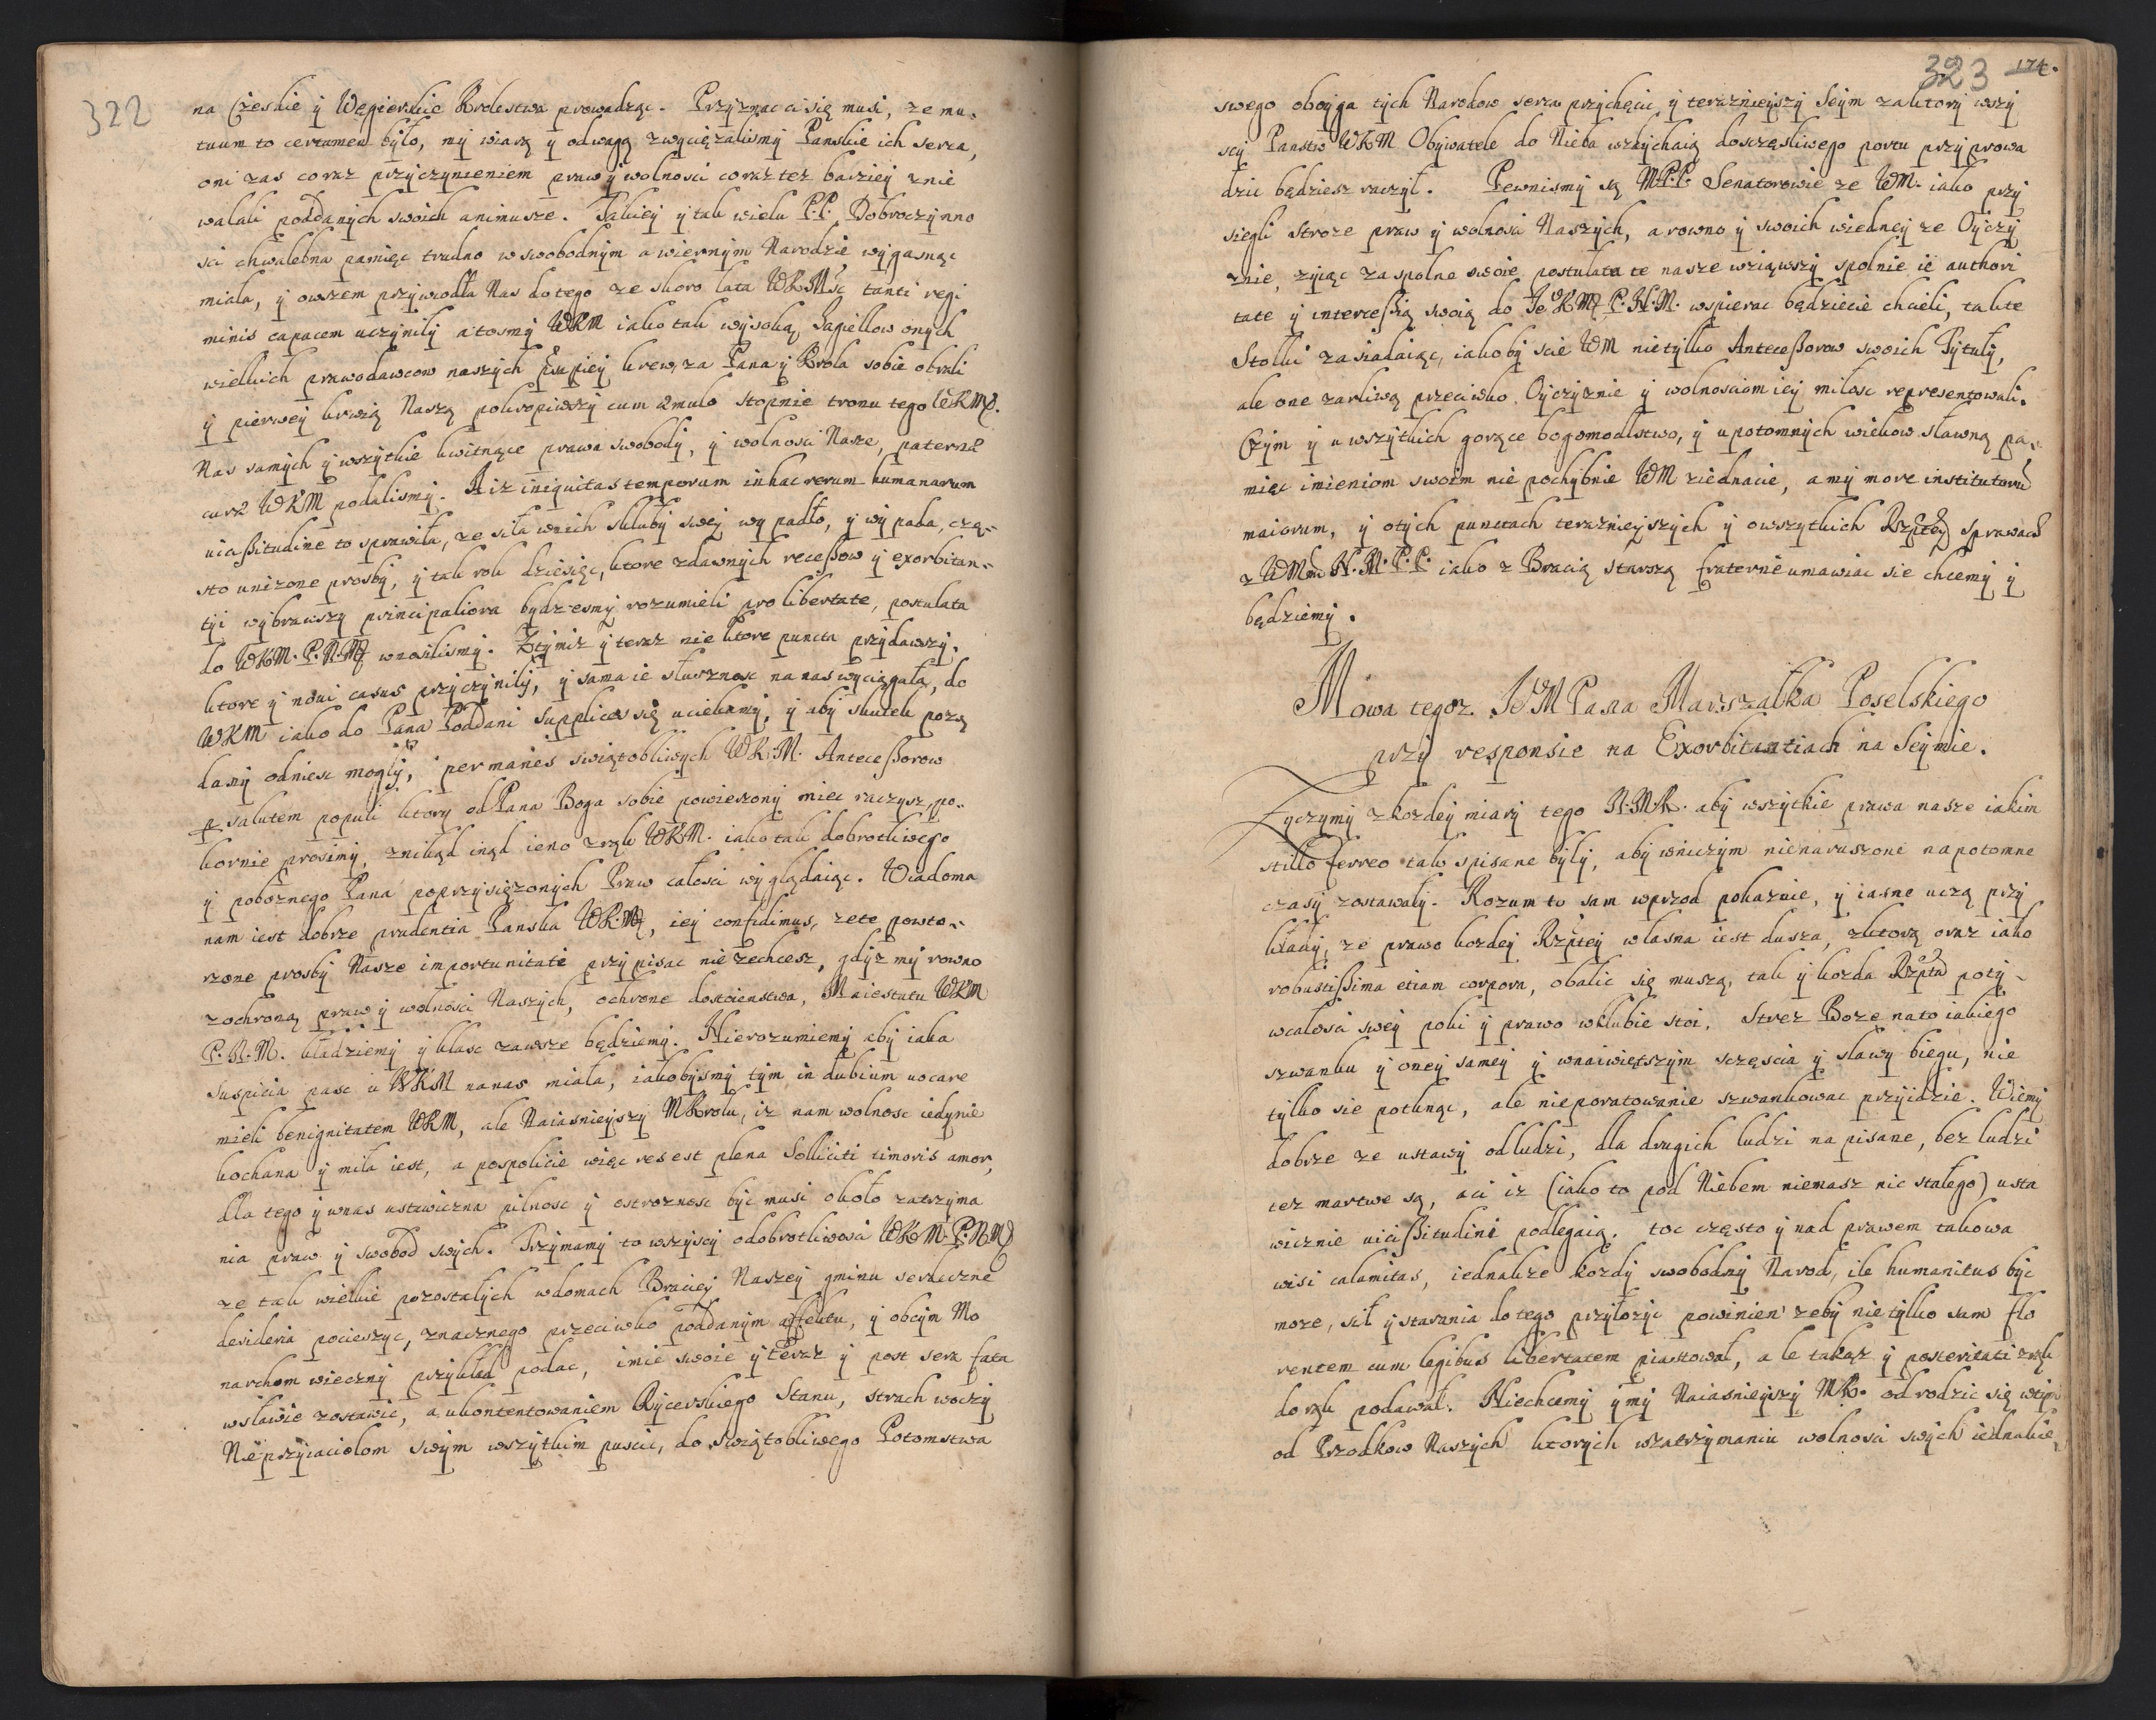 322
na Czeskie ÿ Węgierskie Krolestwa prowadząc. Przÿznac ci się musi, ze mu-
tuum to certamen bÿło, mÿ wiarą ÿ odwagą zwÿciężalismÿ Panskie ich serca,
oni zas coraz przÿczÿnieniem praw ÿ wolnosci coraz tez barziey znie
walali poddanÿch swoich animusze. Takiey ÿ tak wielu P.P. Dobroczÿnno
sci chwalebna pamięc trudno w swobodnÿm a wiernÿm Narodzie wÿgasnąc
miała, ÿ owszem przÿwiodła Nas do tego ze skoro lata WKMsc tanti regi
minis capacem uczÿniłÿ a tosmÿ WKM iako tak wÿsoką, Jagiellow onÿch
wielkich prawodawcow naszÿch krew, za Pana ÿ Krola sobie obrali
ÿ pierweÿ krwią Naszą pokropiwszÿ cum æmulo stopnie tronu tego WKM.
Nas samÿch ÿ wszÿtkie kwitnące prawa swobodÿ, ÿ wolnosci Nasze, paterna
cura WKM podalismÿ. A iz iniquitas temporum in hac rerum humanarum
vicissitudine to sprawiła, ze siła w nich skluby sweÿ wÿpadło, ÿ wÿpada, czę-
sto unizone prosbÿ, ÿ tak rok dziesięc, ktore z dawnÿch recessow ÿ exorbitan-
tÿi wÿbrawszÿ principaliora bydz esmÿ rozumieli pro libertate, postulata
do WKM. P.N.M wnosilismÿ. Z tÿmiz ÿ teraz nie ktore puncta przÿdawszÿ,
ktore ÿ novi casus przÿczÿniłÿ, ÿ sama ie słusznosc na nas wÿciągała, do
WKM iako do Pana Poddani Supplices się uciekamÿ, ÿ abÿ skutek pozą
danÿ odniesc mogłÿ, per manes swiątobliwÿch WK.M. Antecessorow
p salutem populi ktory od Pana Boga sobie powierzonÿ miec raczÿsz, po-
kornie prosimÿ, znikąd inąd ieno z rąk WKM. iako tak dobrotliwego
ÿ poboznego Pana poprzÿsięzonÿch Praw całosci wÿglądaiąc. Wiadoma
nam iest dobrze prudentia Panska WK.M, ieÿ confidimus, ze te powto-
rzone prosbÿ Nasze importunitati przÿpisac nie zechcesz, gdÿz mÿ rowno
z ochroną praw ÿ wolnosci Naszÿch, ochrone dostoienstwa, Maiestatu WKM
P.N.M. kładziemÿ ÿ klasc zawsze będziemÿ. Nierozumiemÿ abÿ iaka
suspicia pasc u WKM na nas miała, iakobÿsmÿ tÿm in dubium vocare
mieli benignitatem WKM, ale Naiasnieÿszÿ MKrolu, iz nam wolnosc iedÿnie
kochana ÿ miła iest, a pospolicie więc res est plena Solliciti timoris amor,
dla tego ÿ u nas ustawiczna pilnosc ÿ ostroznosc bÿc musi około zatrzÿma
nia praw ÿ swobod swÿch. Trzÿmamÿ to wszÿscÿ o dobrotliwosci WKM. P.N.M
ze tak wielkie pozostałÿch w domach Braciey Naszeÿ gminu serdeczne
desideria pocieszÿc, znacznego przeciwko poddanÿm affektu, ÿ obcÿm Mo
narchom wiecznÿ przÿkład podac, imie swoie ÿ teraz ÿ post sera fata
w sławie zostawic, a ukontentowaniem Rÿcerskiego Stanu, strach w oczÿ
Nieprzÿiaciolom swÿm wszÿtkim puscic, do swiątobliwego Potomstwa
323 174.
swego oboÿga tÿch Narodow serca przÿchęcic, ÿ teraznieÿszÿ Seÿm za ktorÿ wszÿ
scÿ Panstw WKM Obÿwatele do Nieba wzdÿchaią do sczęsliwego portu przÿprowa
dzic będziesz raczÿł. Pewnismÿ są MP.P. Senatorowie ze WM. iako przÿ
siegli Stroze praw ÿ wolnosci Naszÿch, a rowno ÿ swoich w iedneÿ ze Oÿczÿ
znie, zÿiąc za spolne swoie postulata te nasze wziąwszÿ spolnie ie authori
tate ÿ intercessią swoią do Je KM P.N.M. wspierac będziecie chcieli, tak te
Stołki zasiadaiąc, iakobÿ scie WM nie tÿlko Antecessorow swoich Tÿtułÿ,
ale one zarliwą przeciwko Oÿczÿznie ÿ wolnosciom ieÿ miłosc representowali.
Czÿm ÿ u wszÿtkich gorące bogomodlstwo, ÿ u potomnÿch wiekow sławną pa-
mięc imieniom swoim niepochÿbnie WM ziednacie, a mÿ more institutoru
maiorum, ÿ o tÿch punctach teraznieÿszÿch ÿ o wszÿtkich Rzptey sprawach
z WMm N.M.P.P. iako z Bracią starszą fraterne umawiac sie chcemÿ ÿ
będziemÿ.
Mowa tegoz JeM Pana Marszałka Poselskiego
przÿ responsie na Exorbitantiach na Seÿmie.
Zÿczÿmÿ z kozdeÿ miarÿ tego N.M.K. abÿ wszÿtkie prawa nasze iakim
stillo ferreo tak spisane bÿłÿ, abÿ w niczÿm nienaruszone na potomne
czasÿ zostawałÿ. Rozum to sam wprzod pokazuie, ÿ iasne uczą przÿ
kładÿ, ze prawo kozdeÿ Rzpteÿ własna iest dusza, z ktorą oraz iako
robustissima etiam corpora, obalic się muszą, tak ÿ kozda Rzpta potÿ-
w całosci sweÿ poki ÿ prawo w klubie stoi. Strzez Boze na to iakiego
szwanku ÿ oneÿ sameÿ ÿ w naiwiętszÿm sczęscia ÿ sławÿ biegu, nie
tÿlko sie potknąc, ale nieporatowanie szwankowac przÿidzie. Wiemÿ
dobrze ze ustawÿ od ludzi, dla drugich ludzi napisane, bez ludzi
tez martwe są, a ci iz (iako to pod Niebem niemasz nic stałego) usta
wicznie vicissitudini podlegaią, toc często ÿ nad prawem takowa
wisi calamitas, iednakze kozdÿ swobodnÿ Narod, ile humanitus bÿc
moze, sił ÿ starania do tego przÿłozÿc powinien zebÿ nie tÿlko sam flo
rentem cum legibus libertatem piastował, ale takąz ÿ posteritati z rąk
do rąk podawał. Niechcemÿ ÿ mÿ Naiasnieÿszÿ MK. odrodzic się w tÿm
od Przodkow Naszÿch ktorÿch w zatrzÿmaniu wolnosci swÿch iednakie